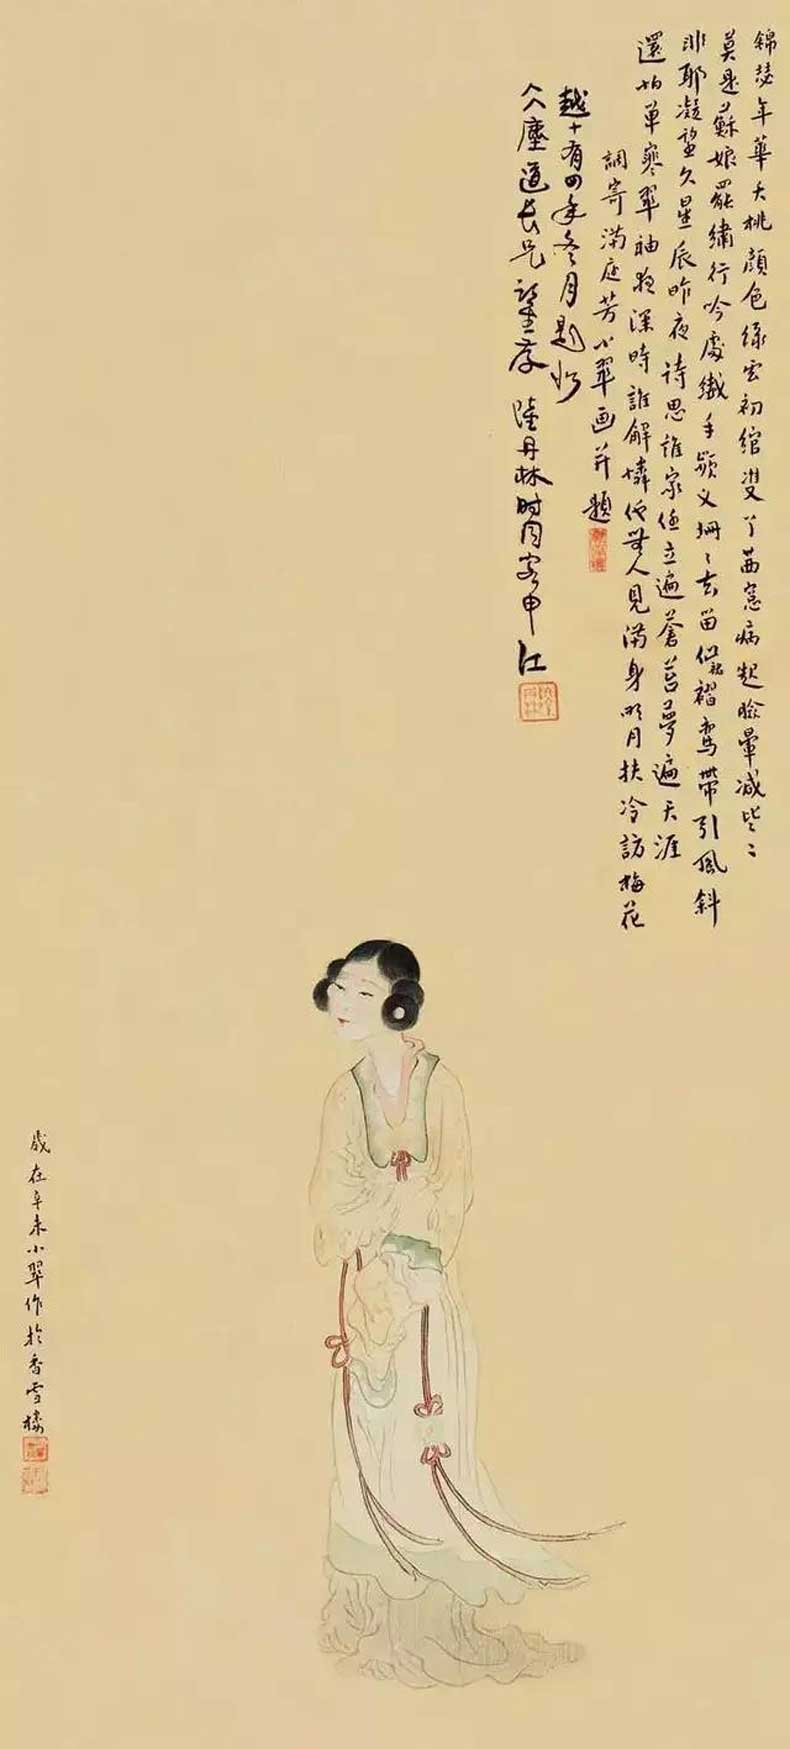 錦瑟年華夭桃顏色綠雲初綰雙丫茜窓病起臉暈減些〻
莫是蘇娘罷繡行吟處纖手頻叉珊〻去留仙裙褶鸞帶引風斜
非耶凝望久星辰昨夜詩思誰家佇立遍蒼苔夢遍天涯
還怕單寒翠袖夜深時誰解憐伊無人見滿身明月扶冷訪梅花
調寄滿庭芳小翠画并題
越十有四年冬月題於
塵道長兄 存 陸丹林時同客申江
歲在辛未小翠作於香雪樓